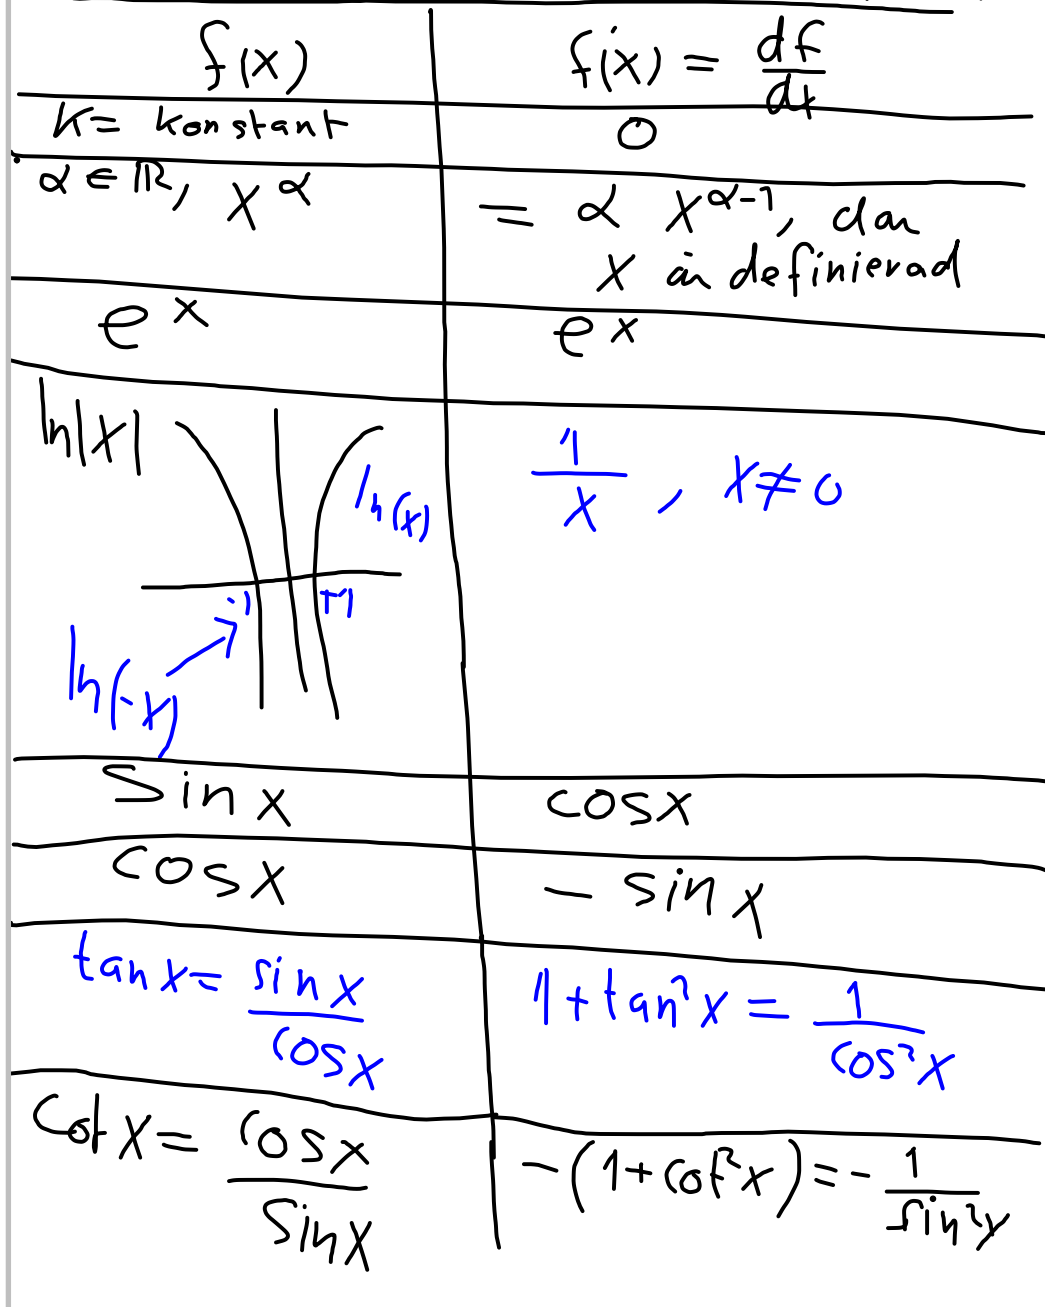 f(x) f'(x) = df/dx
K = konstant 0
α ∈ ℝ, x^α = α x^(α-1), där
x är definierad
e^x e^x
ln|x| 1/x, x ≠ 0
ln(x)
-1 +1
ln(-x)
sin x cos x
cos x - sin x
tan x = sin x/cos x 1 + tan²x = 1/cos²x
cot x = cos x/sin x -(1 + cot²x) = - 1/sin²x